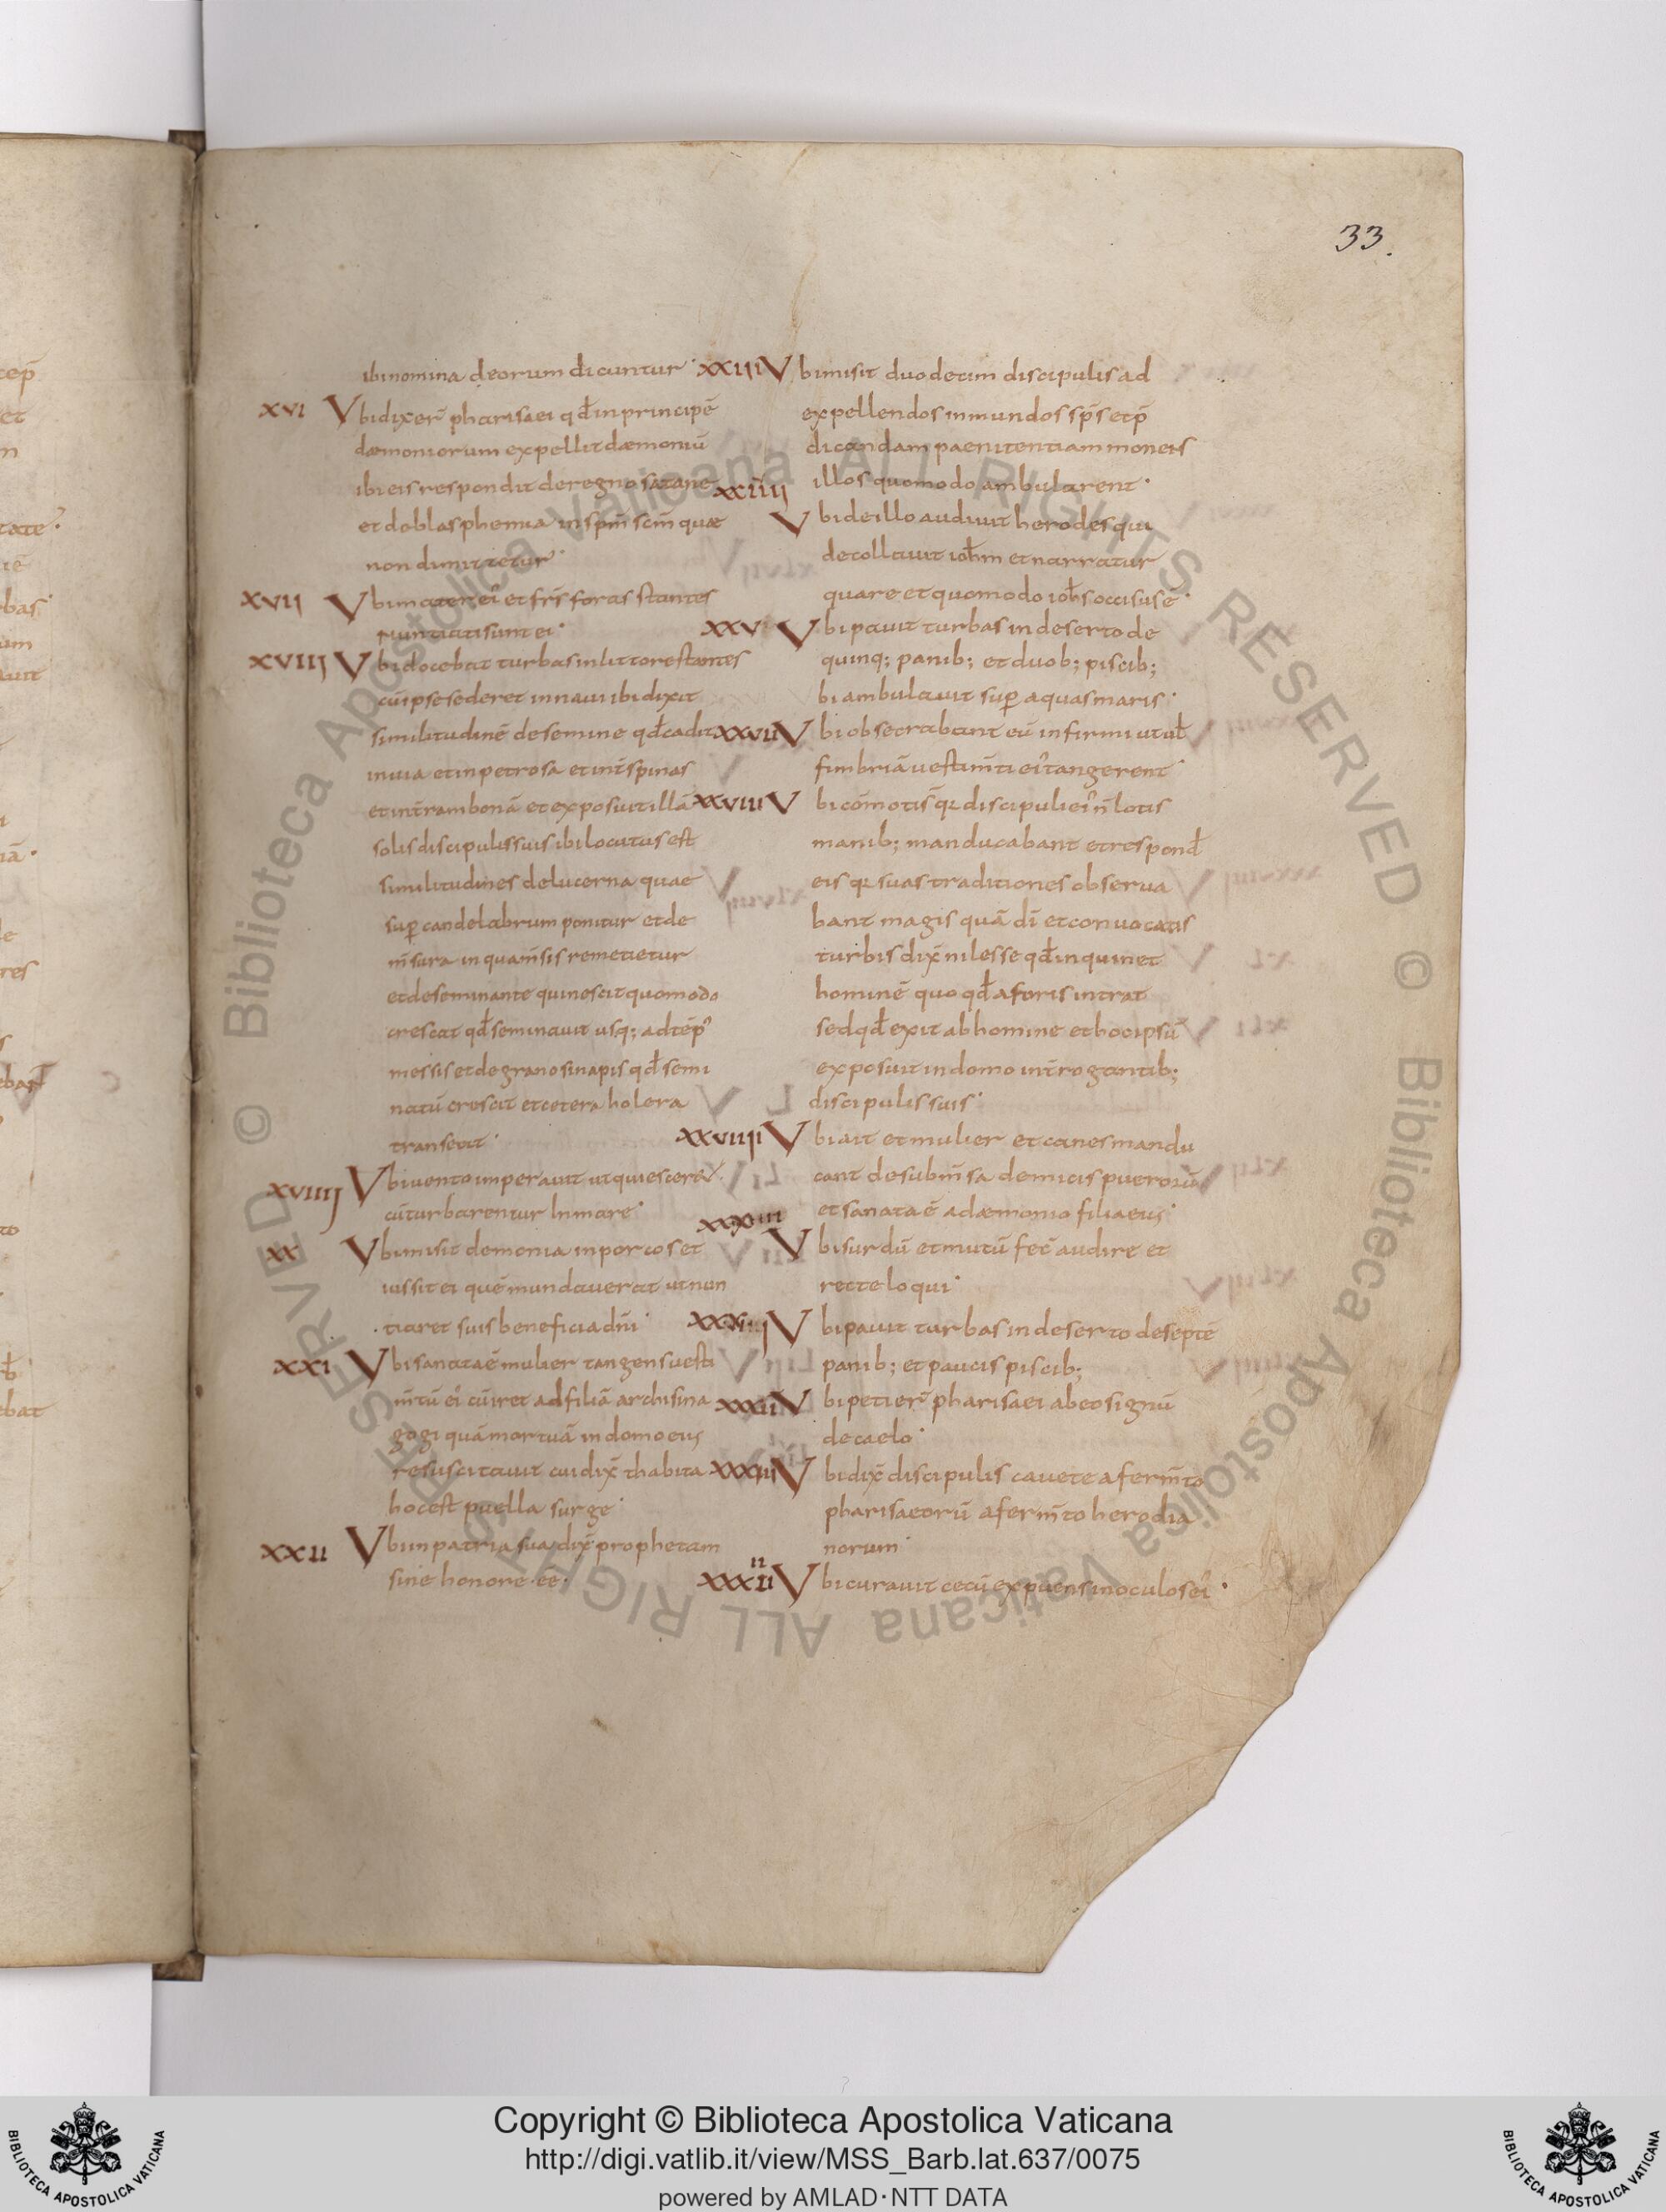 33.
ibi nomina deorum dicuntur
XVI Vbi dixer̄ pharisaei qđ in principē
dæmoniorum expellit dæmoniū
ibi eis respondit de regno satane
et do blasphemia in spm̄ scm̄ quæ
non dimittetur
XVII Vbi mater ei' et frs̄ foras stantes
nuntiati sunt ei
XVIII Vbi docebat turbas in littore stantes
cū ipse sederet in naui ibi dixit
similitudinē de semine qđ cadit
in uia et in petrosa et int̄ spinas
et in t̄ram bonā et exposuit illā
solis discipulis suis ibi locutus est
similitudines de lucerna quae
sup candelabrum ponitur et de
m̄sura in qua m̄sis remetietur
et de seminante qui nescit quomodo
crescat qđ seminauit usq; ad tēp'
messis et de grano sinapis qđ semi
natū crescit et cetera holera
transeat
XVIIII Vbi uento imperauit ut quiesceret
cū turbarentur in mare
XX Vbi misit demonia in porcos et
iussit ei quē mundauerat ut nun
tiaret suis beneficia dn̄i
XXI Vbi sanata ē mulier tangens uesti
m̄tū ei' cū iret ad filiā archisina
gogi quā mortuā in domo eius
resuscitauit cui dix̄ thabita
hoc est puella surge
XXII Vbi in patria sua dix̄ prophetam
sine honore ee
XXIII Vbi misit duodecim discipulis ad
expellendos inmundos sp̄s et p̄
dicandam paenitentiam monens
illos quomodo ambularent
XXIIII
Vbi de illo audiuit herodes qui
decollauit ioh̄m et narratur
quare et quomodo ioh̄s occisus ē
XXV Vbi pauit turbas in deserto de
quinq; panib; et duob; piscib;
bi ambulauit sup aquas maris
XXVII Vbi obsecrabant eū infirmi ut uł
fimbriā uestim̄ti ei' tangerent
XXVIII Vbi cōmotis qr discipuli ei' n̄ lotis
manib; manducabant et responđ
eis qr suas traditiones obserua
bant magis quā dī et conuocatis
turbis dix̄ nil esse qđ inquinet
hominē quo qđ a foris intrat
sed qđ exit ab homine et hoc ipsū
exposuit in domo int̄rogantib;
discipulis suis
XXVIIII Vbi ait et mulier et canes mandu
cant de sub m̄sa de micis puerorū
et sanata ē a dæmonio filia eius
Vbi surdū et mutū fec̄ audire et
recte loqui
Vbi pauit turbas in deserto de septē
panib; et paucis piscib;
XXXII Vbi petier̄ pharisaei ab eo signū
de caelo
XXXIII Vbi dix̄ discipulis cauete a ferm̄to
pharisaeorū a ferm̄to herodia
norum
Vbi curauit cecū expuens in oculos ei'
© Biblioteca Apostolica Vaticana ALL RIGHTS RESERVED © Biblioteca Apostolica Vaticana ALL RIGHTS RESERVED
Copyright © Biblioteca Apostolica Vaticana
http://digi.vatlib.it/view/MSS_Barb.lat.637/0075
powered by AMLAD・NTT DATA
BIBLIOTECA APOSTOLICA VATICANA
BIBLIOTECA APOSTOLICA VATICANA